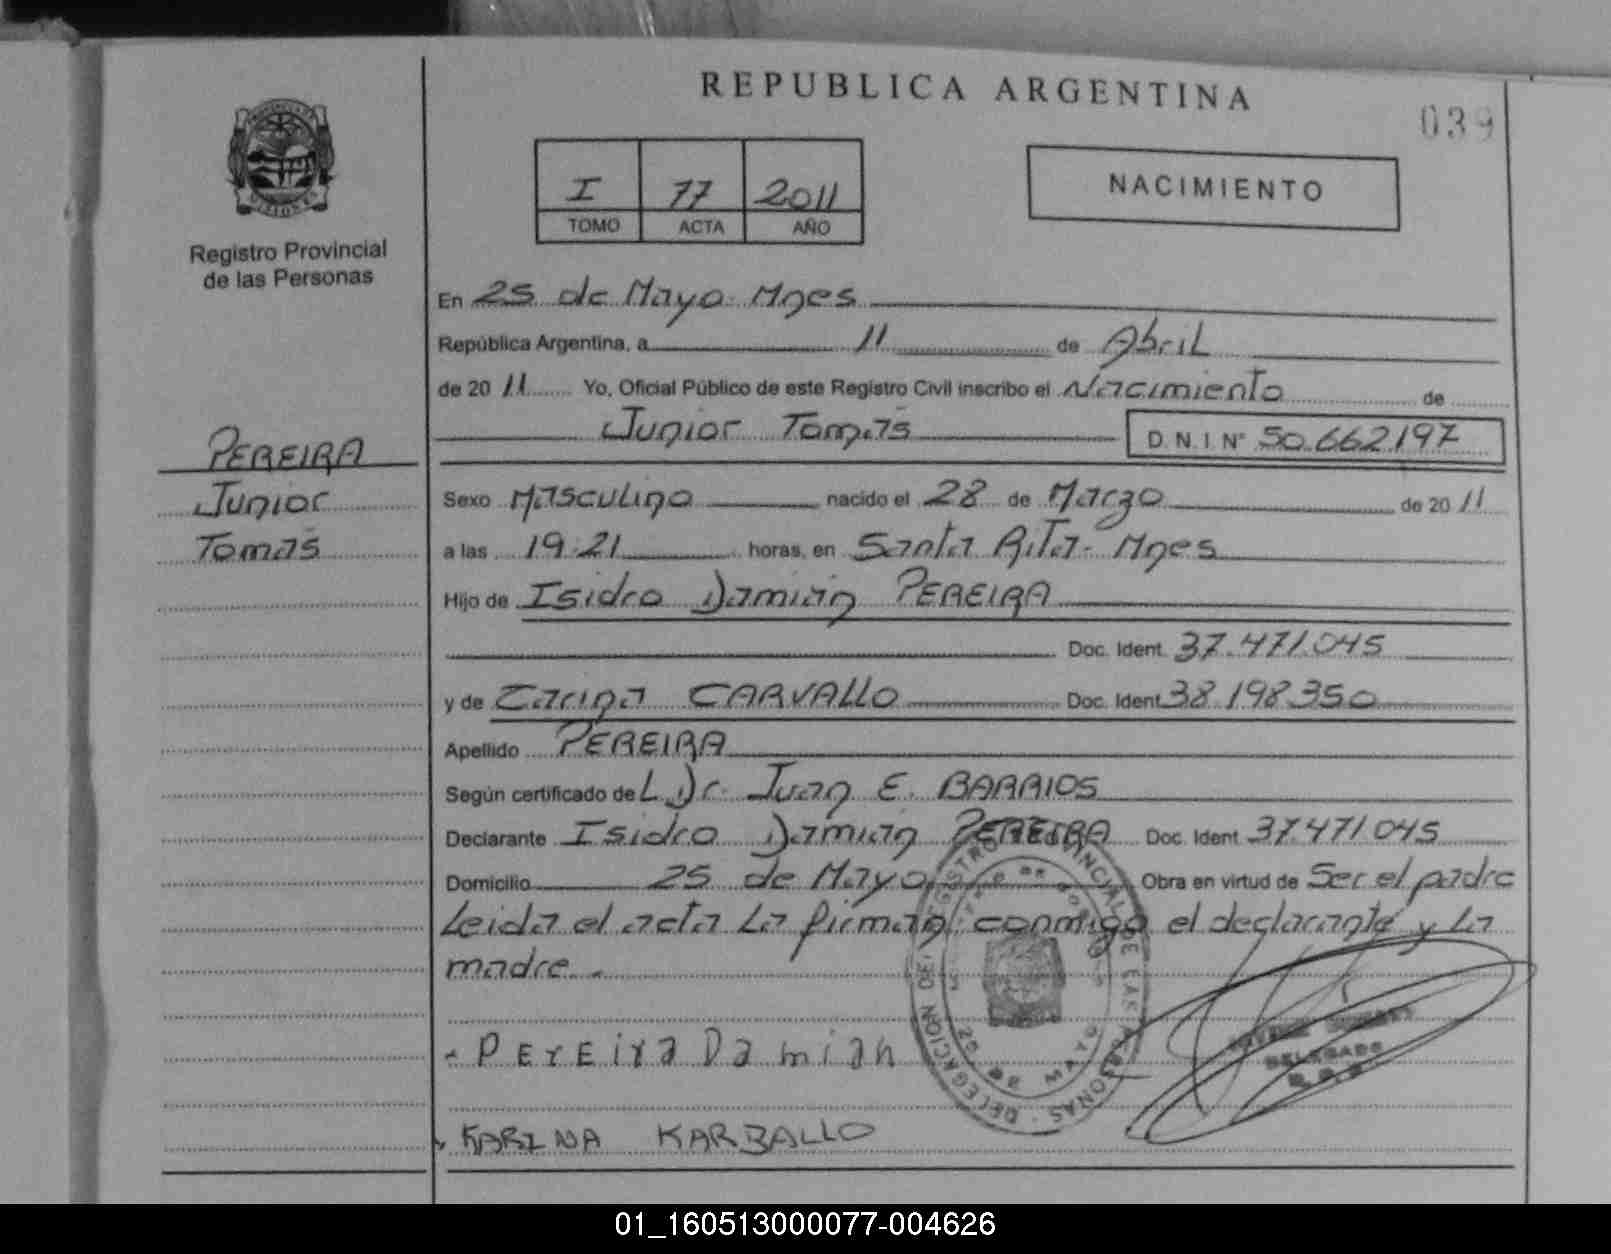 REPUBLICA ARGENTINA
039
I 77 2011
TOMO ACTA AÑO
NACIMIENTO
PROVINCIA DE MISIONES
Registro Provincial
de las Personas
PEREIRA
Junior
Tomás
En 25 de Mayo. Mnes
República Argentina, a 11 de Abril
de 20 11 Yo, Oficial Público de este Registro Civil inscribo el Nacimiento de
Junior Tomás D.N.I. N° 50.662.197
Sexo Masculino nacido el 28 de Marzo de 20 11
a las 19.21 horas, en Santa Rita- Mnes
Hijo de Isidro Damián PEREIRA
Doc. Ident. 37.471.045
y de Carina CARVALLO Doc. Ident 38.198.350
Apellido PEREIRA
Según certificado de L Dr. Juan E. BARRIOS
Declarante Isidro Damián PEREIRA Doc. Ident. 37.471.045
Domicilio 25 de Mayo Obra en virtud de Ser el padre
Leida el acta La firman conmigo el declarante y La
madre.
- PErEira Damian
KARINA KARBALLO
REGISTRO PROVINCIAL DE LAS PERSONAS
25 DE MAYO
DELEGADO
01_160513000077-004626